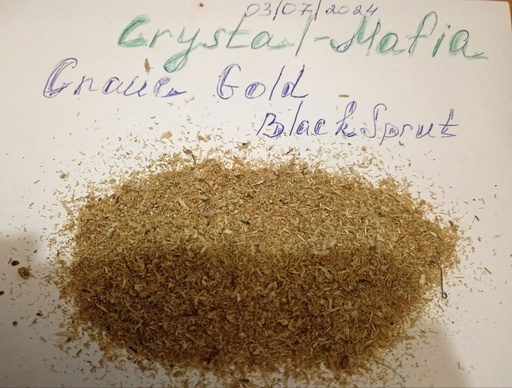 03/07/2024
Crystal-Mafia
Gold
BlackSprut